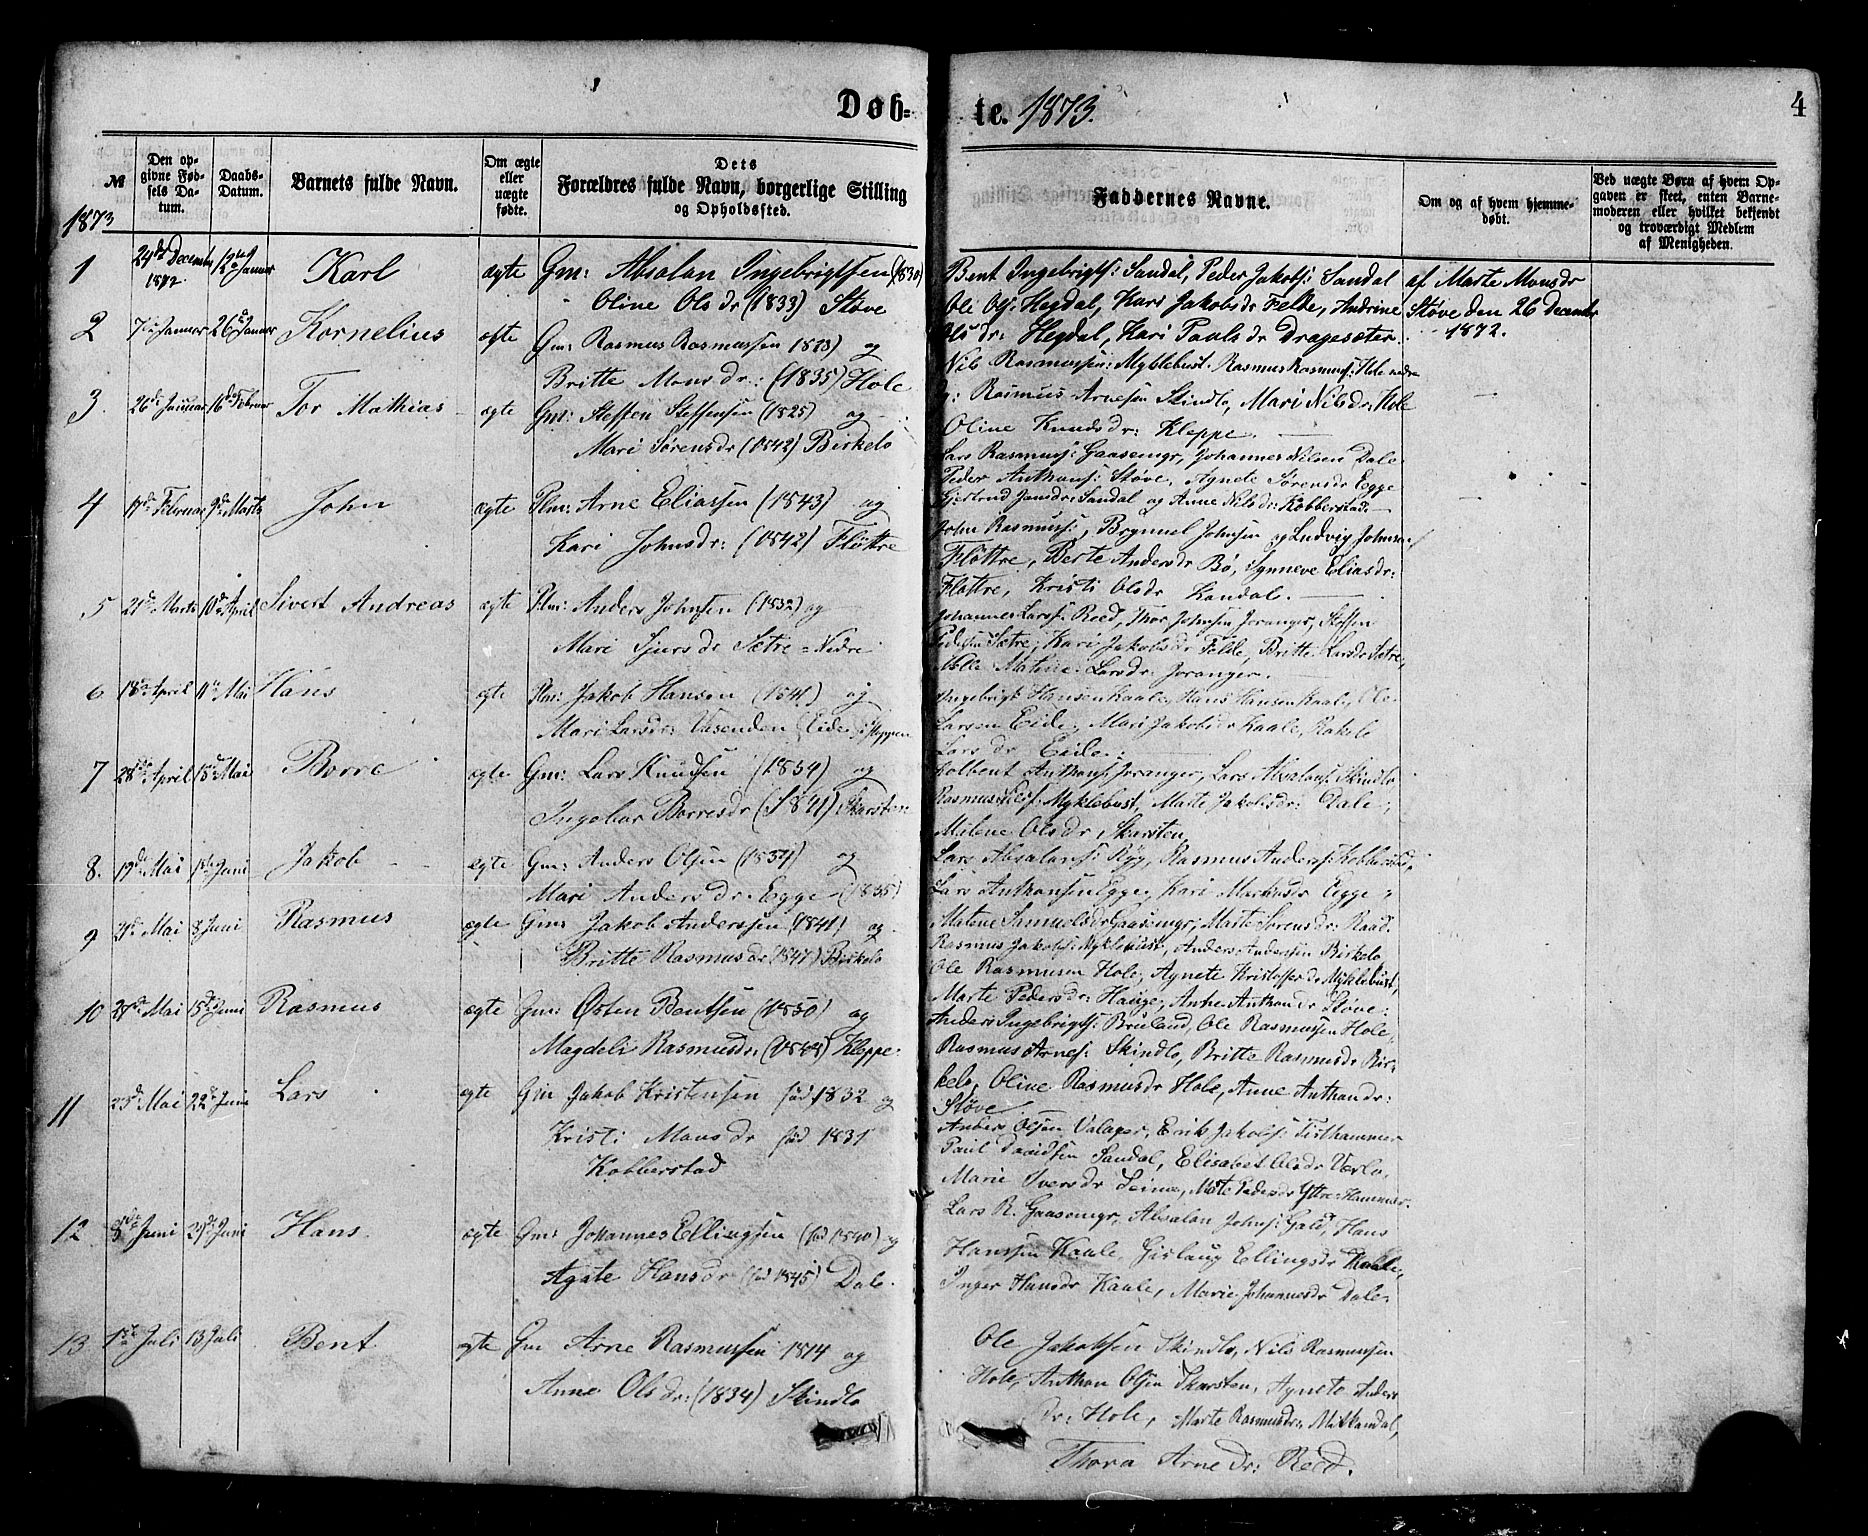 Døb=
te. 1873.
4
№
Den opgivne Fødsels Datum.
Daabs-Datum.
Barnets fulde Navn.
Om ægte eller uægte fødte.
Dets
Forældres fulde Navn, borgerlige Stilling
og Opholdssted.
Faddernes Navne.
Om og af hvem hjemmedøbt.
Ved uægte Børn af hvem Opgaven er skeet, enten Barnemoderen eller hvilket bekjendt og troværdigt Medlem af Menigheden.
1873
1 24de December 1872. 12te Januar Karl ægte Gm: Absalon Ingebrigtsen (1830)
Oline Olsdr (1833) Støve
Bent Ingebrigts: Sandal, Peder Jakobs: Sandal
Ole Ols: Hegdal, Kari Jakobsdr Felde, Andrine
Olsdr: Hegdal, Kari Paulsdr Dragesæter.
af Marte Monsdr
Støve den 26 December
1872.
2 7de Januar 26de Januar Kornelius ægte Gm: Rasmus Rasmussen og
Britte Monsdr: (1835) Hole
Nils Rasmussen: Myklebust. Rasmus Rasmuss: Hole
Rasmus Arnesen Skindlo, Mari Nilsdr: Hole
Oline Knudsdr: Kleppe.
3. 26de Januar 16de Februar Tor Mathias ægte Gm: Steffen Steffensen (1825) og
Mari Sørensdr (1842) Birkelo
Lars Rasmuss: Gaasemyr, Johannes Nilsen Dale
Peder Anthons: Støve, Agnete Sørensdr Egge
Gjertrud Jonsdr: Sandal og Anne Nilsdr: Kobberstad.
4 Februar 9de Marts John ægte Plm: Arne Eliassen (1843) og
Kari Johnsdr: (1842) Fløttre
John Rasmuss:, Brynnel Johnsen og Ludvig Johnsen
Fløttre, Berte Andersdr Bø, Synneve Eliasdr:
Fløttre, Kristi Olsdr Kandal.
5 21de Marts 10de April Sivert Andreas ægte Plm: Anders Johnsen (1832) og
Mari Sjursdr Sætre = Nedre
Johannes Larss: Reed, Thor Johnsen Joranger, Steffen
Sætre, Kari Jakobsdr Felde, Britte Larsdr Sætre,
Matene Larsdr: Joranger.
6 18de April 11te Mai Hans ægte Plm: Jakob Hansen (1841) og
Mari Larsdr: Vasenden (Eide)
Ingebrigt Hansen Kaale, Hans Hansen Kaale, Ole
Larsen Eide, Mari Jakobsdr Kaale, Rakele
Larsdr Eide.
7 28de April 15de Mai Borre ægte Gm: Lars Knudsen (1834) og
Ingebor Borresdr (1841) Skarsten
Kolbent Anthons: Joranger, Lars Absalons: Skindlo
Rasmus Nilss: Myklebust, Marte Jakobsdr: Dale,
Milene Olsdr Skarsten.
8. 19de Mai 1ste Juni Jakob ægte Gm: Anders Olsen (1834) og
Mari Andersdr: Egge (1835)
Lars Absalons: Ryg, Rasmus Anders: Kobberstad,
Lars Anthonsen Egge, Kari Markusdr Egge,
Matene Samuelsdr Gaasemyr, Marte Sørensdr: Raad.
9 Mai 8 Juni Rasmus ægte Gm: Jakob Anderssen (1841) og
Britte Rasmusdr (1841) Birkelo
Rasmus Jakobs: Myklebust, Anders Andersen Birkelo
Ole Rasmusen Hole, Agnete Kristoffersdr Myklebust,
Marte Pedersdr: Hauge, Anne Anthondr Støve:
10 Mai 15de Juni Rasmus ægte Gm: Østen Bentsen (1850) og
Magdeli Rasmusdr: (1844) Kleppe.
Anders Ingebrigts: Bruland, Ole Rasmussen Hole,
Rasmus Arnes: Skindlo, Britte Rasmusdr Bir-
kelo, Oline Rasmusdr Hole, Anne Anthondr:
Støve.
11 25de Mai 22de Juni Lars ægte Gm Jakob Kristensen fød 1832 og
Kristi Monsdr fød 1831
Kobberstad
Anders Olsen Valaper, Erik Jakobs: Fisthammer
Paul Davidsen Sandal, Elisabet Olsdr Værlo.
Marie Iversdr Seime, Marte Pedersdr Ytre-Hammer.
12 Juni Juni Hans ægte Gm: Johannes Ellingsen (fød 1840) og
Agate Hansdr (fød 1845) Dale.
Lars R. Gaasemyr, Absalon Johns: Gald, Hans
Hanssen Kaale, Gislaug Ellingsdr Kaale,
Inger Hansdr Kaale, Marie Johannesdr Dale.
13 1ste Juli 13 Juli Bent ægte Gm Arne Rasmussen 1814 og
Anne Olsdr: (1834) Skindlo
Ole Jakobsen Skindlo, Nils Rasmussen
Hole, Anthon Olsen Skarsten, Agnete Anders
dr: Hole, Marte Rasmusdr: Mitkandal,
Thora Arnedr: Reed.